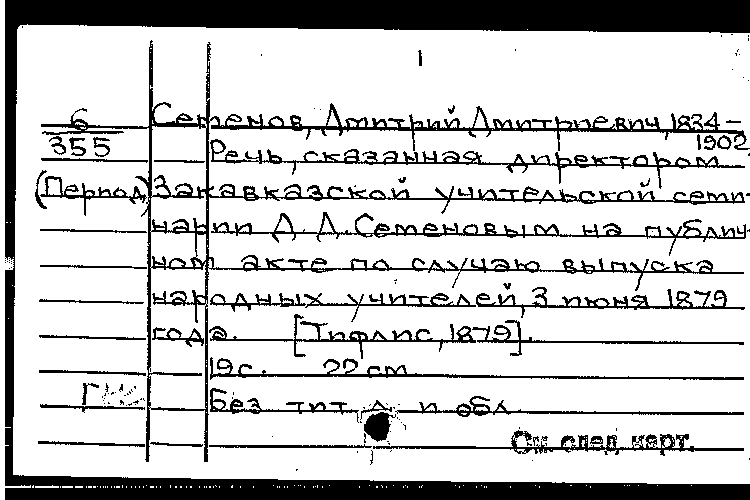 1
6
Семенов, Дмитрий Дмитриевич, 1834-
355
1902
Речь, сказанная директором
(Период) Закавказской учительской семи-
нарии Д. Д. Семеновым на публич-
ном акте по случаю выпуска
народных учителей, 3 июня 1879
года. [Тифлис, 1879].
19 с. 22 см
Без тит. л. и обл.
См. след. карт.